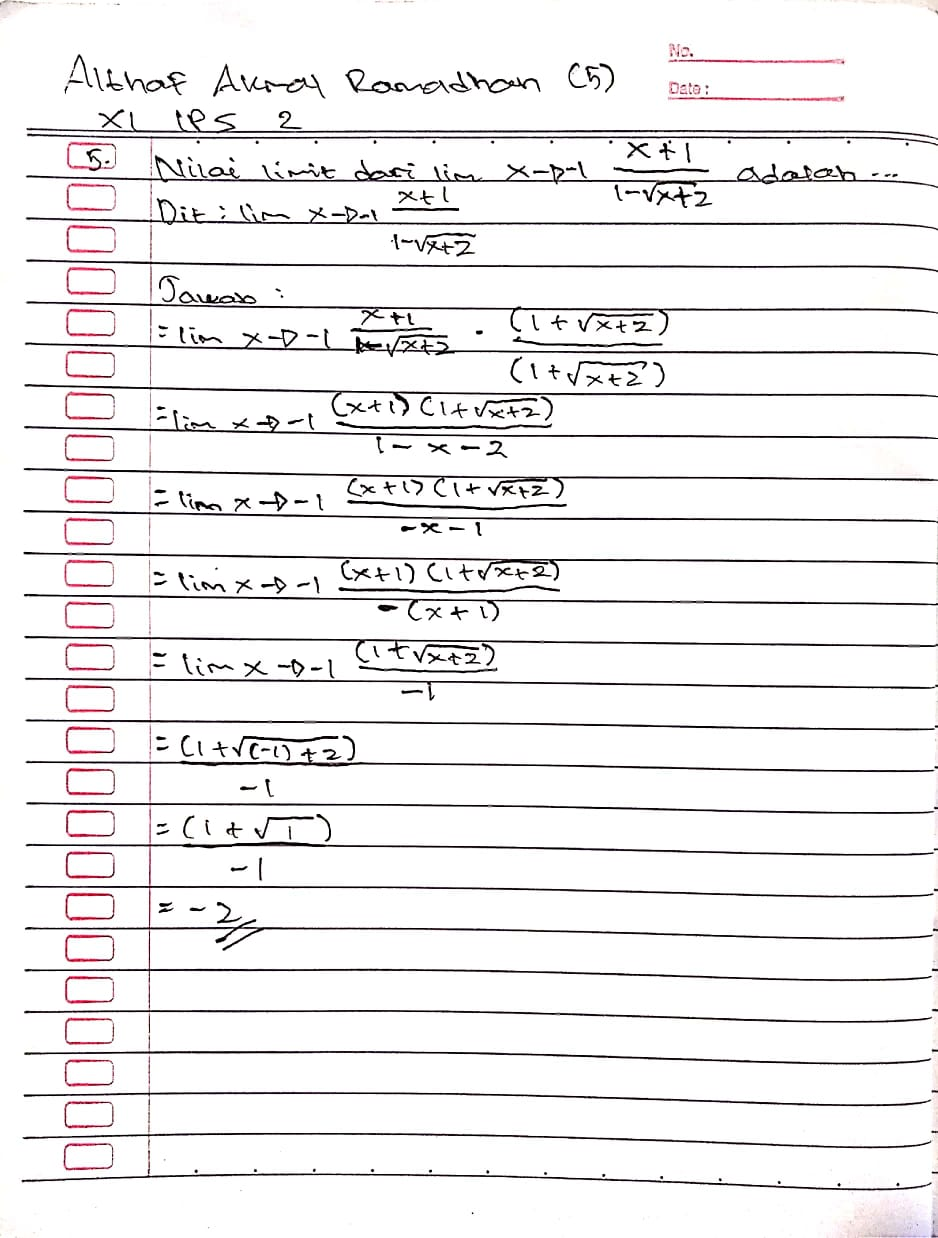 No.
Althaf Akmal Ramadhan (5)
Date :
XI IPS 2
5. Nilai limit dari lim x→-1 x+1 / 1-√x+2 adalah ...
Dit : lim x→-1 x+1 / 1-√x+2
Jawab :
= lim x→-1 x+1 / 1-√x+2 . (1+√x+2) / (1+√x+2)
= lim x→-1 (x+1) (1+√x+2) / 1-x-2
= lim x→-1 (x+1) (1+√x+2) / -x-1
= lim x→-1 (x+1) (1+√x+2) / -(x+1)
= lim x→-1 (1+√x+2) / -1
= (1+√(-1)+2) / -1
= (1+√1) / -1
= -2